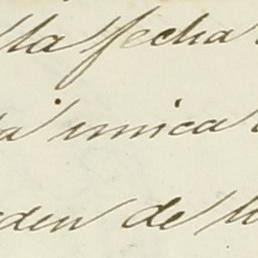 la fecha
unica
den de